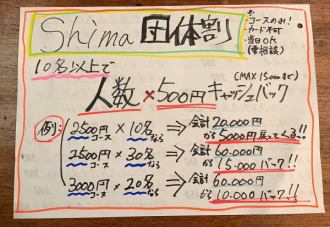 Shima 団体割
コースのみ!
カード不可
当日OK
(電相談)
10名以上で
人数×500円キャッシュバック
(MAX 15000まで)
例:
2500円コース×10名なら⇒会計20.000円から5000円戻ってくる!!
2500円コース×30名なら⇒会計60.000円から15.000バック!!
3000円コース×20名なら⇒会計60.000円から10.000バック!!